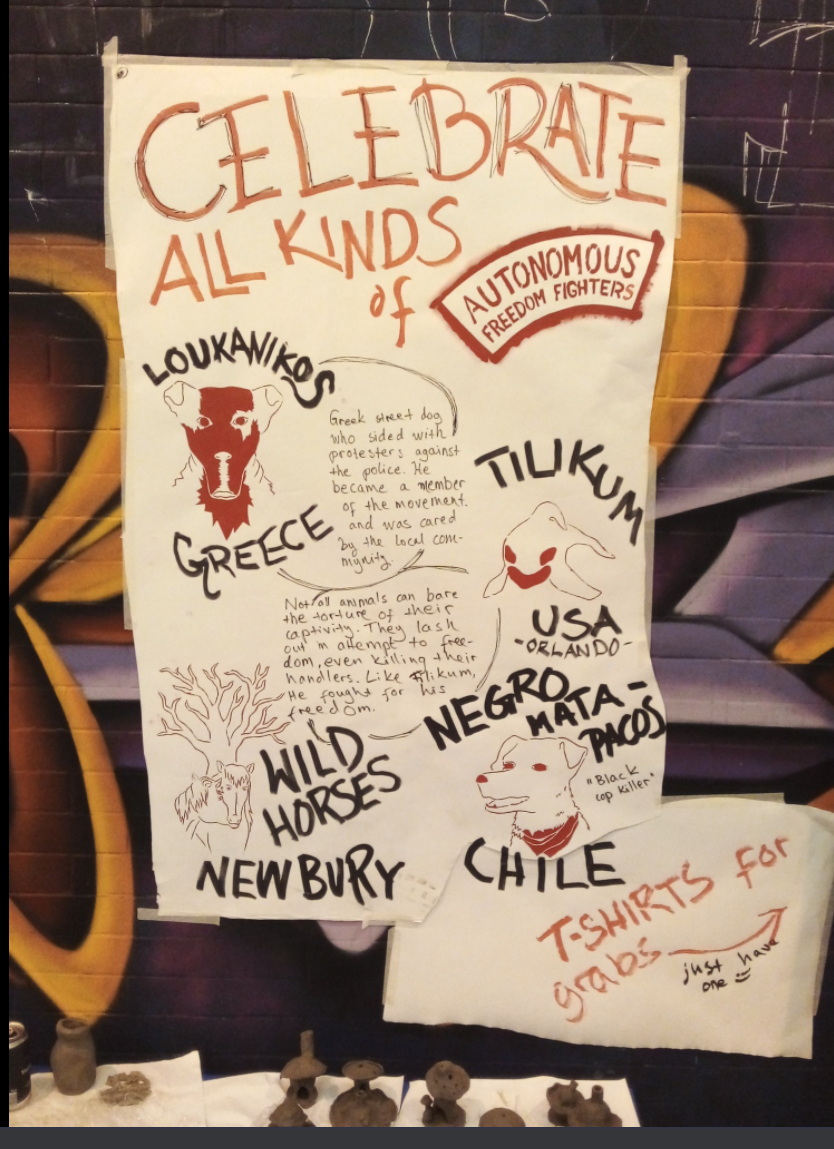 CELEBRATE
ALL KINDS
of
AUTONOMOUS
FREEDOM FIGHTERS
LOUKANIKOS
Greek street dog
who sided with
protesters against
the police. He
became a member
of the movement.
and was cared
by the local com-
mynity.
GREECE
TILIKUM
USA
-ORLANDO-
Not all animals can bare
the torture of their
captivity. They lash
out in attempt to free-
dom, even killing their
handlers. Like Tilikum,
He fought for his
freedom.
WILD
HORSES
NEWBURY
NEGRO
MATA-
PACOS
"Black
cop killer"
CHILE
T-SHIRTS for
grabs
just have
one